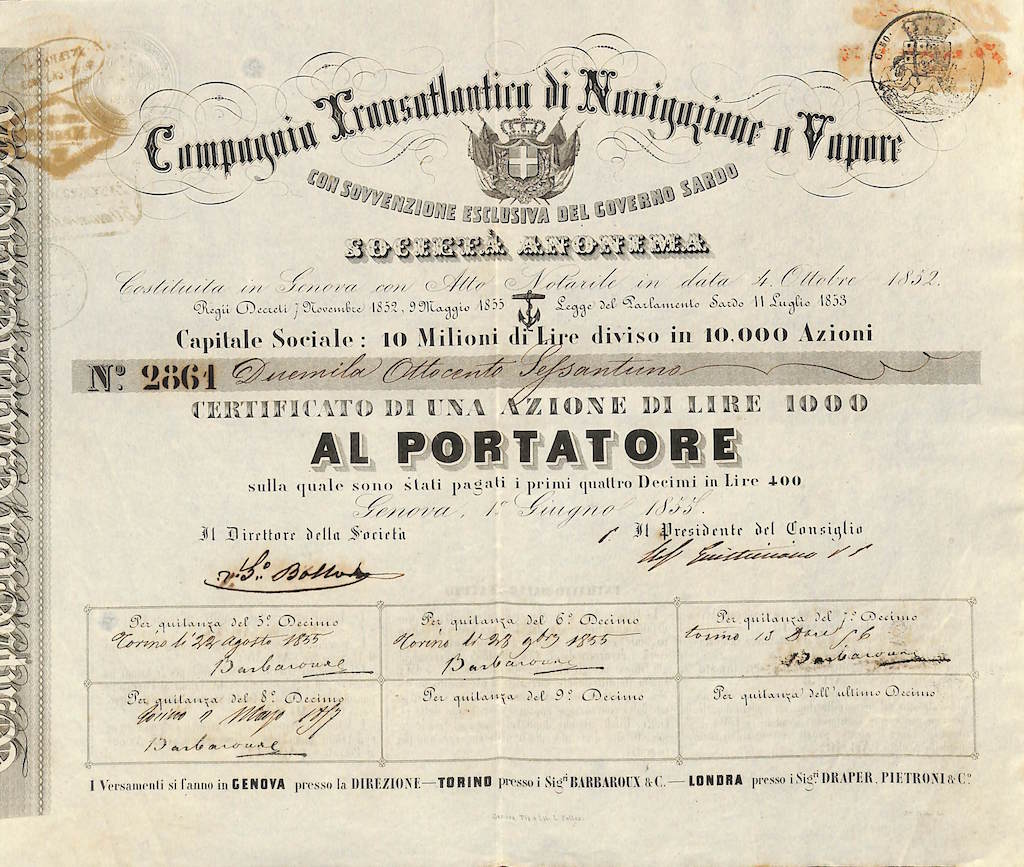 Compagnia Transatlantica di Navigazione a Vapore
CON SOVVENZIONE ESCLUSIVA DEL GOVERNO SARDO
SOCIETÀ ANONIMA
Costituita in Genova con Atto Notarile in data 4. Ottobre 1852.
Regii Decreti 7 Novembre 1852, 9 Maggio 1855 Legge del Parlamento Sardo 11 Luglio 1853
Capitale Sociale: 10 Milioni di Lire diviso in 10.000 Azioni
Nº. 2861 Duemila Ottocento Sessantuno
CERTIFICATO DI UNA AZIONE DI LIRE 1000
AL PORTATORE
sulla quale sono stati pagati i primi quattro Decimi in Lire 400
Genova, 1º Giugno 1855.
Il Direttore della Società Il Presidente del Consiglio
Per quitanza del 5º Decimo Per quitanza del 6º Decimo Per quitanza del 7º Decimo
Torino li 22 agosto 1855 Torino li 23 9bre 1855 Torino 13 56
Barbaroux Barbaroux Barbaroux
Per quitanza del 8º Decimo Per quitanza del 9º Decimo Per quitanza dell'ultimo Decimo
Torino Marzo 1857
Barbaroux
I Versamenti si fanno in GENOVA presso la DIREZIONE — TORINO presso i Sigri BARBAROUX & C. — LONDRA presso i Sigri DRAPER, PIETRONI & Cº